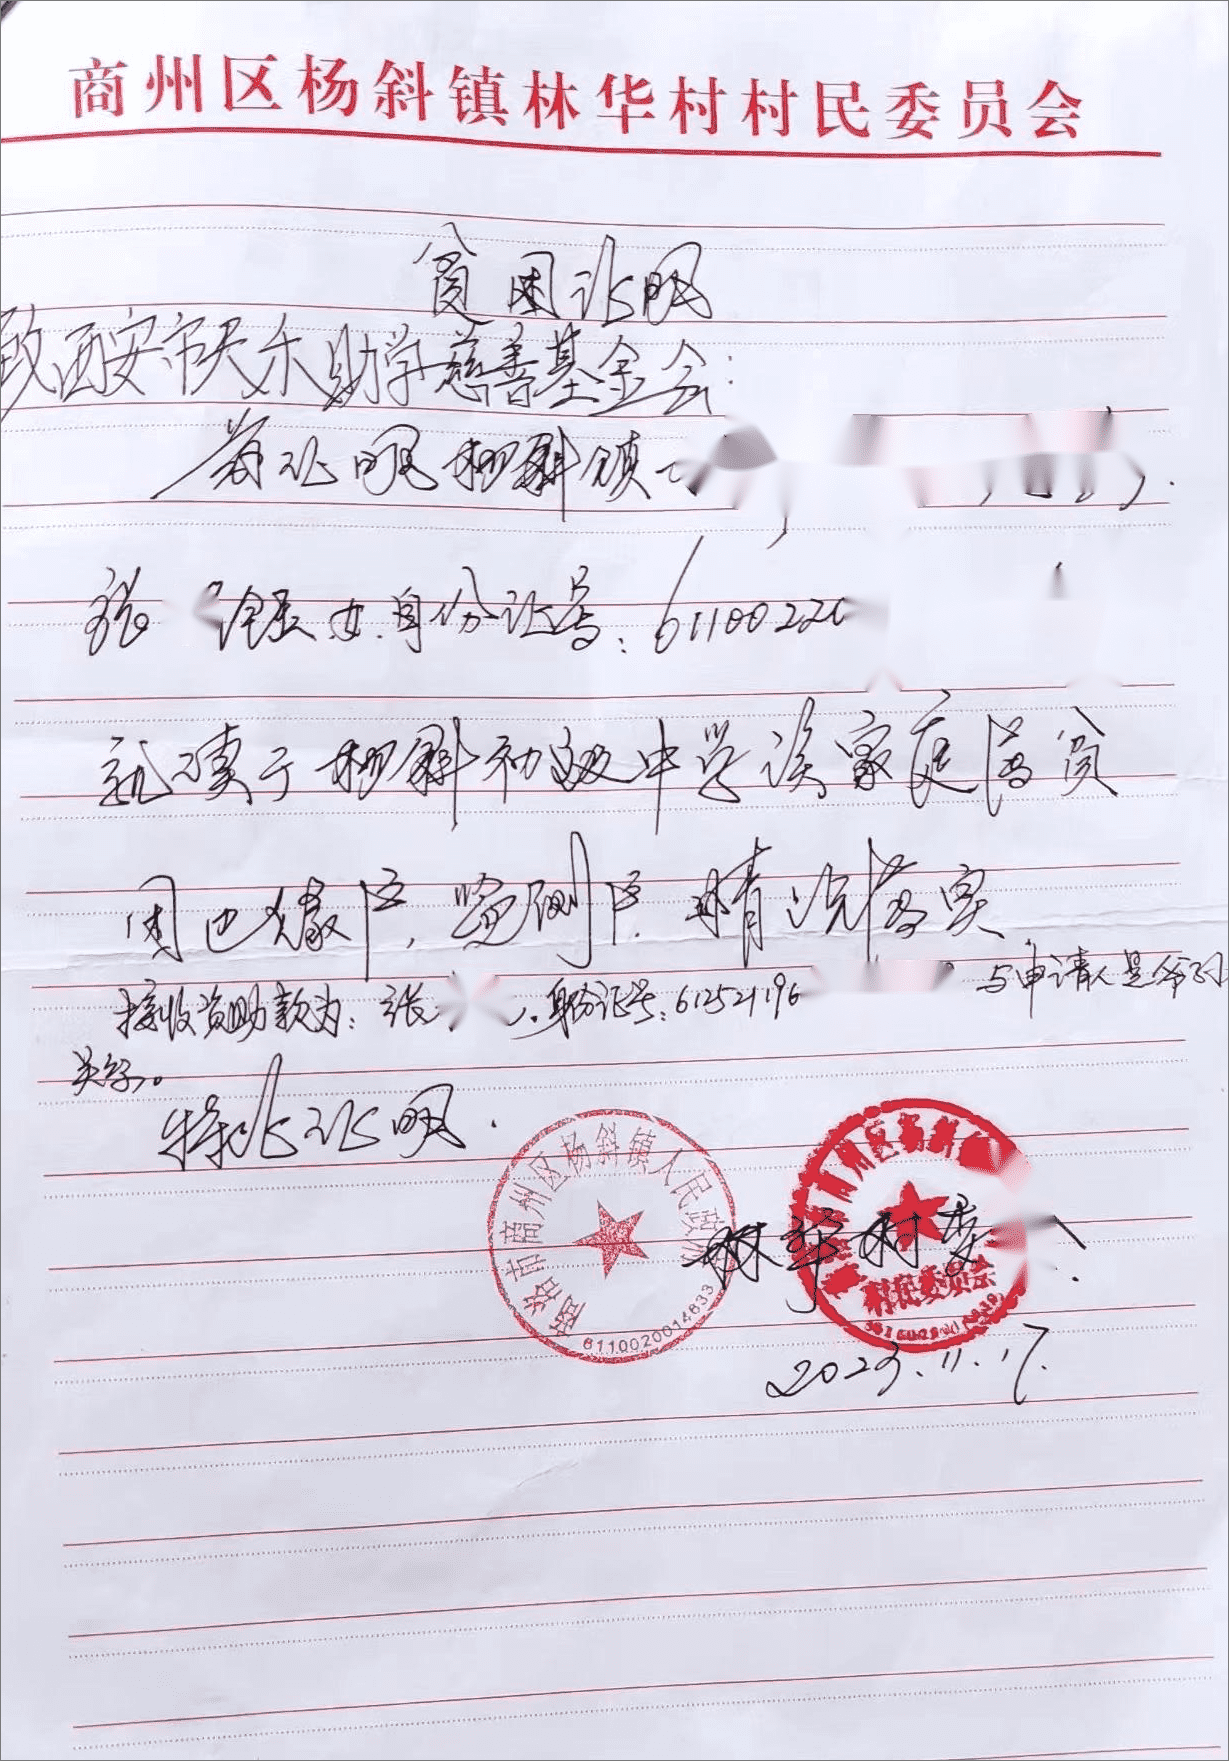 商州区杨斜镇林华村村民委员会
贫困证明
致西安市天乐助学慈善基金会：
兹证明杨斜镇
张 女.身份证号：61100220
就读于杨斜初级中学该家庭属贫
困边缘户，监测户.情况落实
接收资助款为：张 .身份证号：61252196 与申请人是爷孙
关系。
特此证明.
商洛市商州区杨斜镇人民政府
6110020014633
商州区杨斜镇
村民委员会
林华村委
2023.11.17.